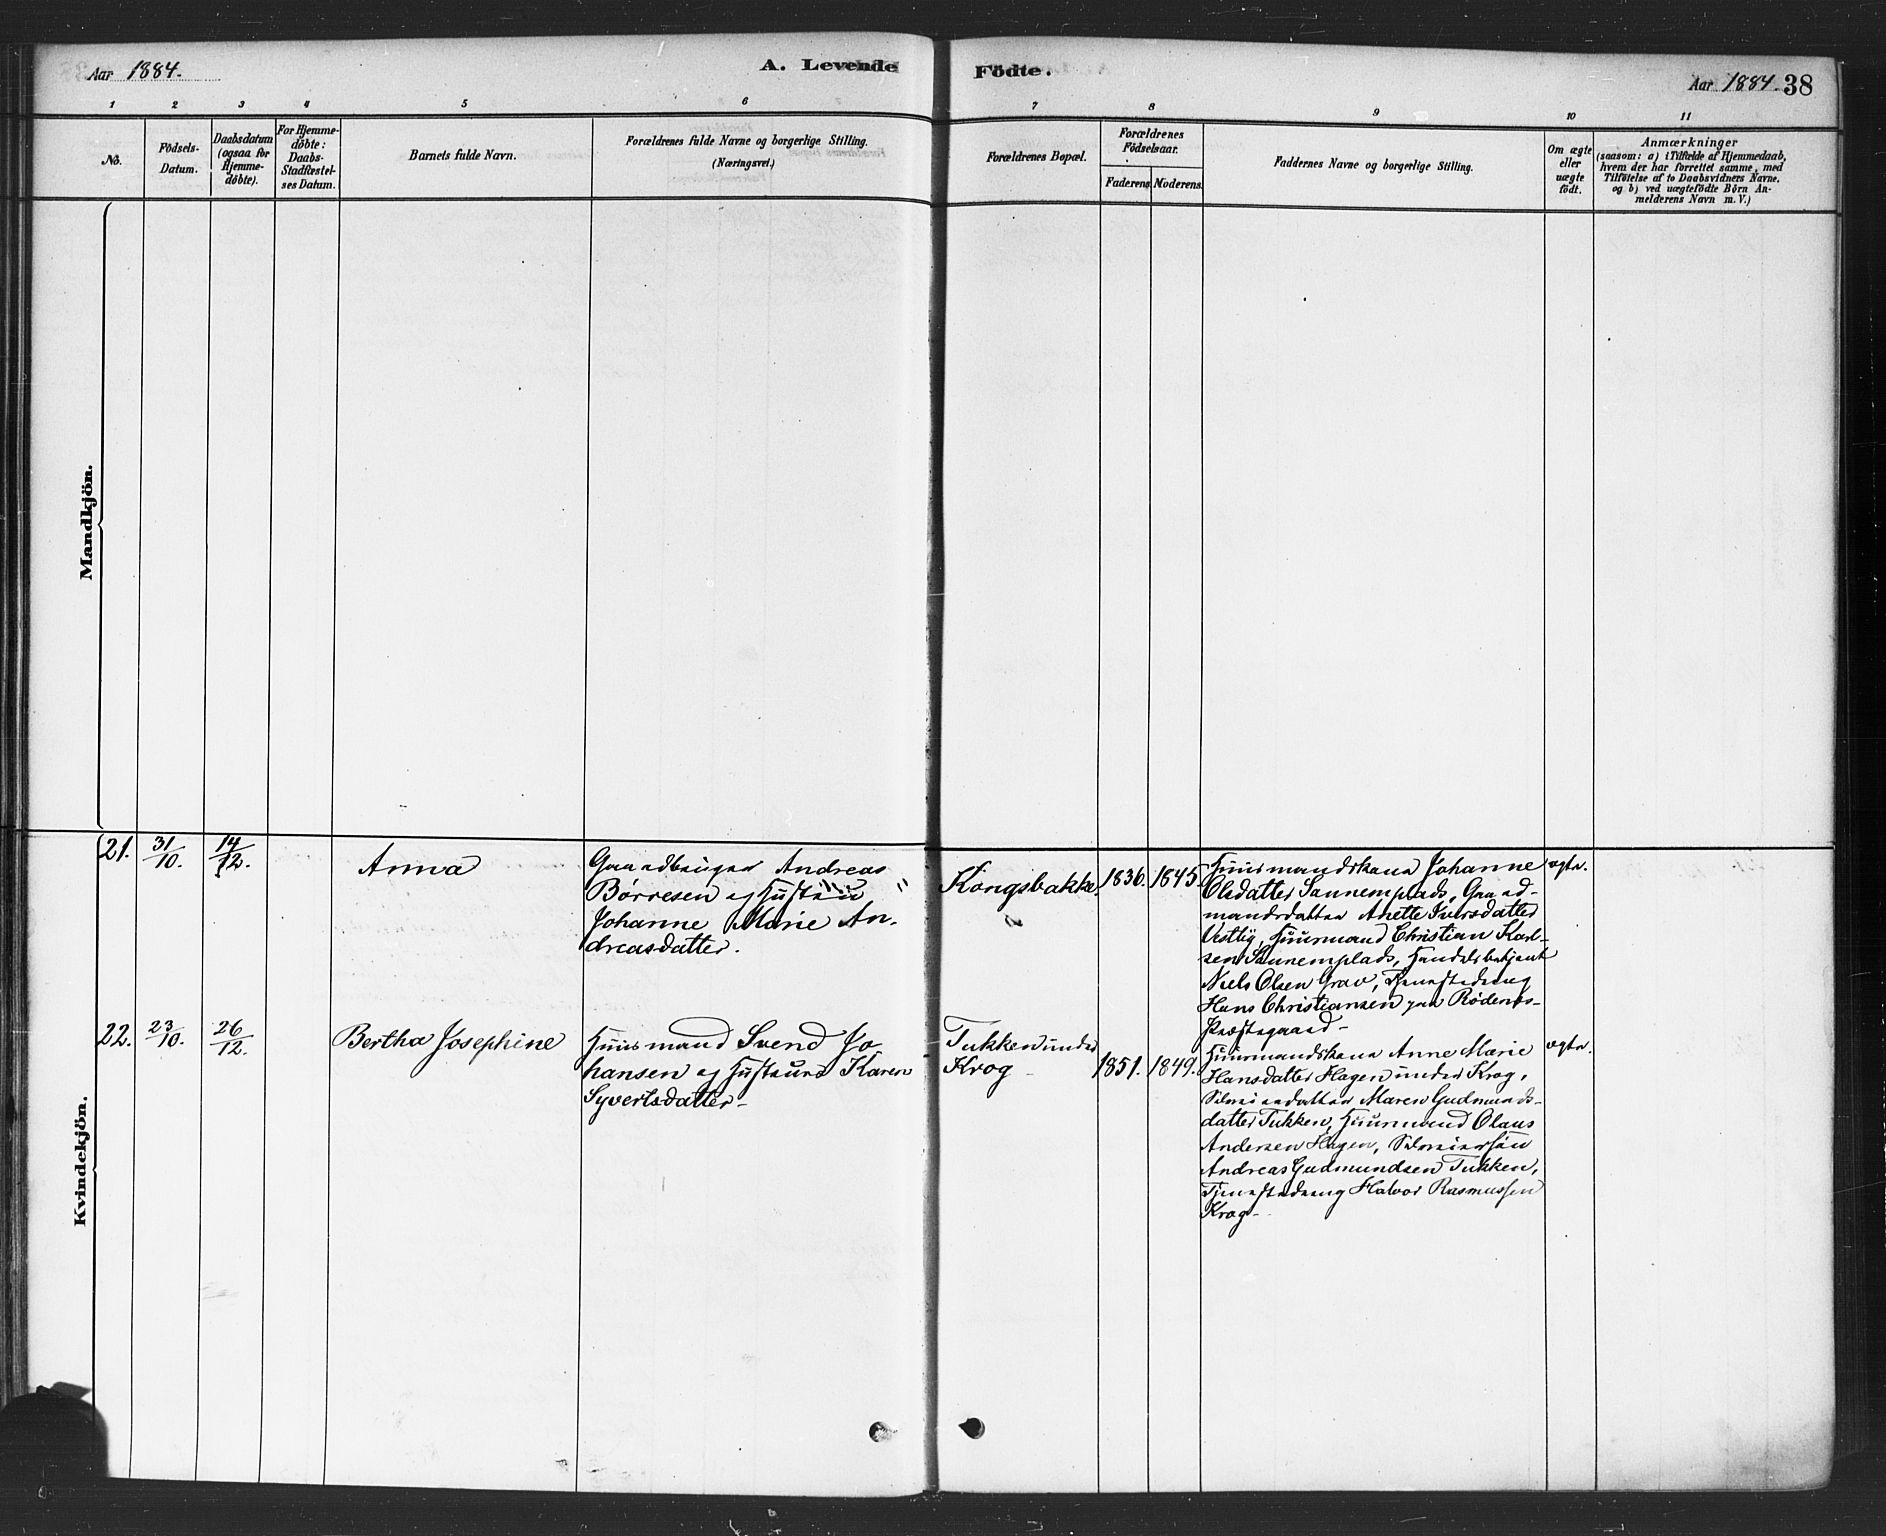 Aar 1884.
A. Levende Födte.
Aar 1884. 38
1 2 3 4 5 6 7 8 9 10 11
No.
Födsels-
Datum.
Daabsdatum
(ogsaa for
Hjemme-
döbte).
For Hjemme-
döbte:
Daabs-
Stadfæstel-
ses Datum.
Barnets fulde Navn.
Forældrenes fulde Navne og borgerlige Stilling.
(Næringsvei.)
Forældrenes Bopæl.
Forældrenes
Födselsaar.
Faderens.
Moderens.
Faddernes Navne og borgerlige Stilling.
Om ægte
eller
uægte
födt.
Anmærkninger
(saasom: a) i Tilfælde af Hjemmedaab,
hvem der har forrettet samme, med
Tilföielse af to Daabsvidners Navne,
og b) ved uægtefödte Börn An-
melderens Navn m. V.)
Mandkjön.
Kvindekjön.
21.
31/10.
14/12.
Anna
Gaardbruger Andreas
Børresen og Hustru
Johanne Marie An-
dreasdatter.
Kongsbakke.
1836.
1845
Huusmandskone Johanne
Olsdatter Sannemplads, Gaard-
mandsdatter Anette Iversdatter
Vestby, Huusmand Christian Karl-
sen Sannemplads, Handelsbetjent
Niels Olsen Grav, Tjenestedreng
Hans Christiansen paa Rødenes-
Præstegaard-
ægte.
22.
23/10.
26/12.
Bertha Josephine
Huusmand Svend Jo
hansen og Hustru Karen
Syvertsdatter-
Tukken under
Krog
1851.
1849.
Huusmandskone Anne Marie
Hansdatter Hagen under Krog,
Maren Gudmunds-
datter Tukken, Huusmand Olaus
Andersen Hagen,
Andreas Gudmundsen Tukken,
Tjenestedreng Halvor Rasmussen
Krog-
ægte.